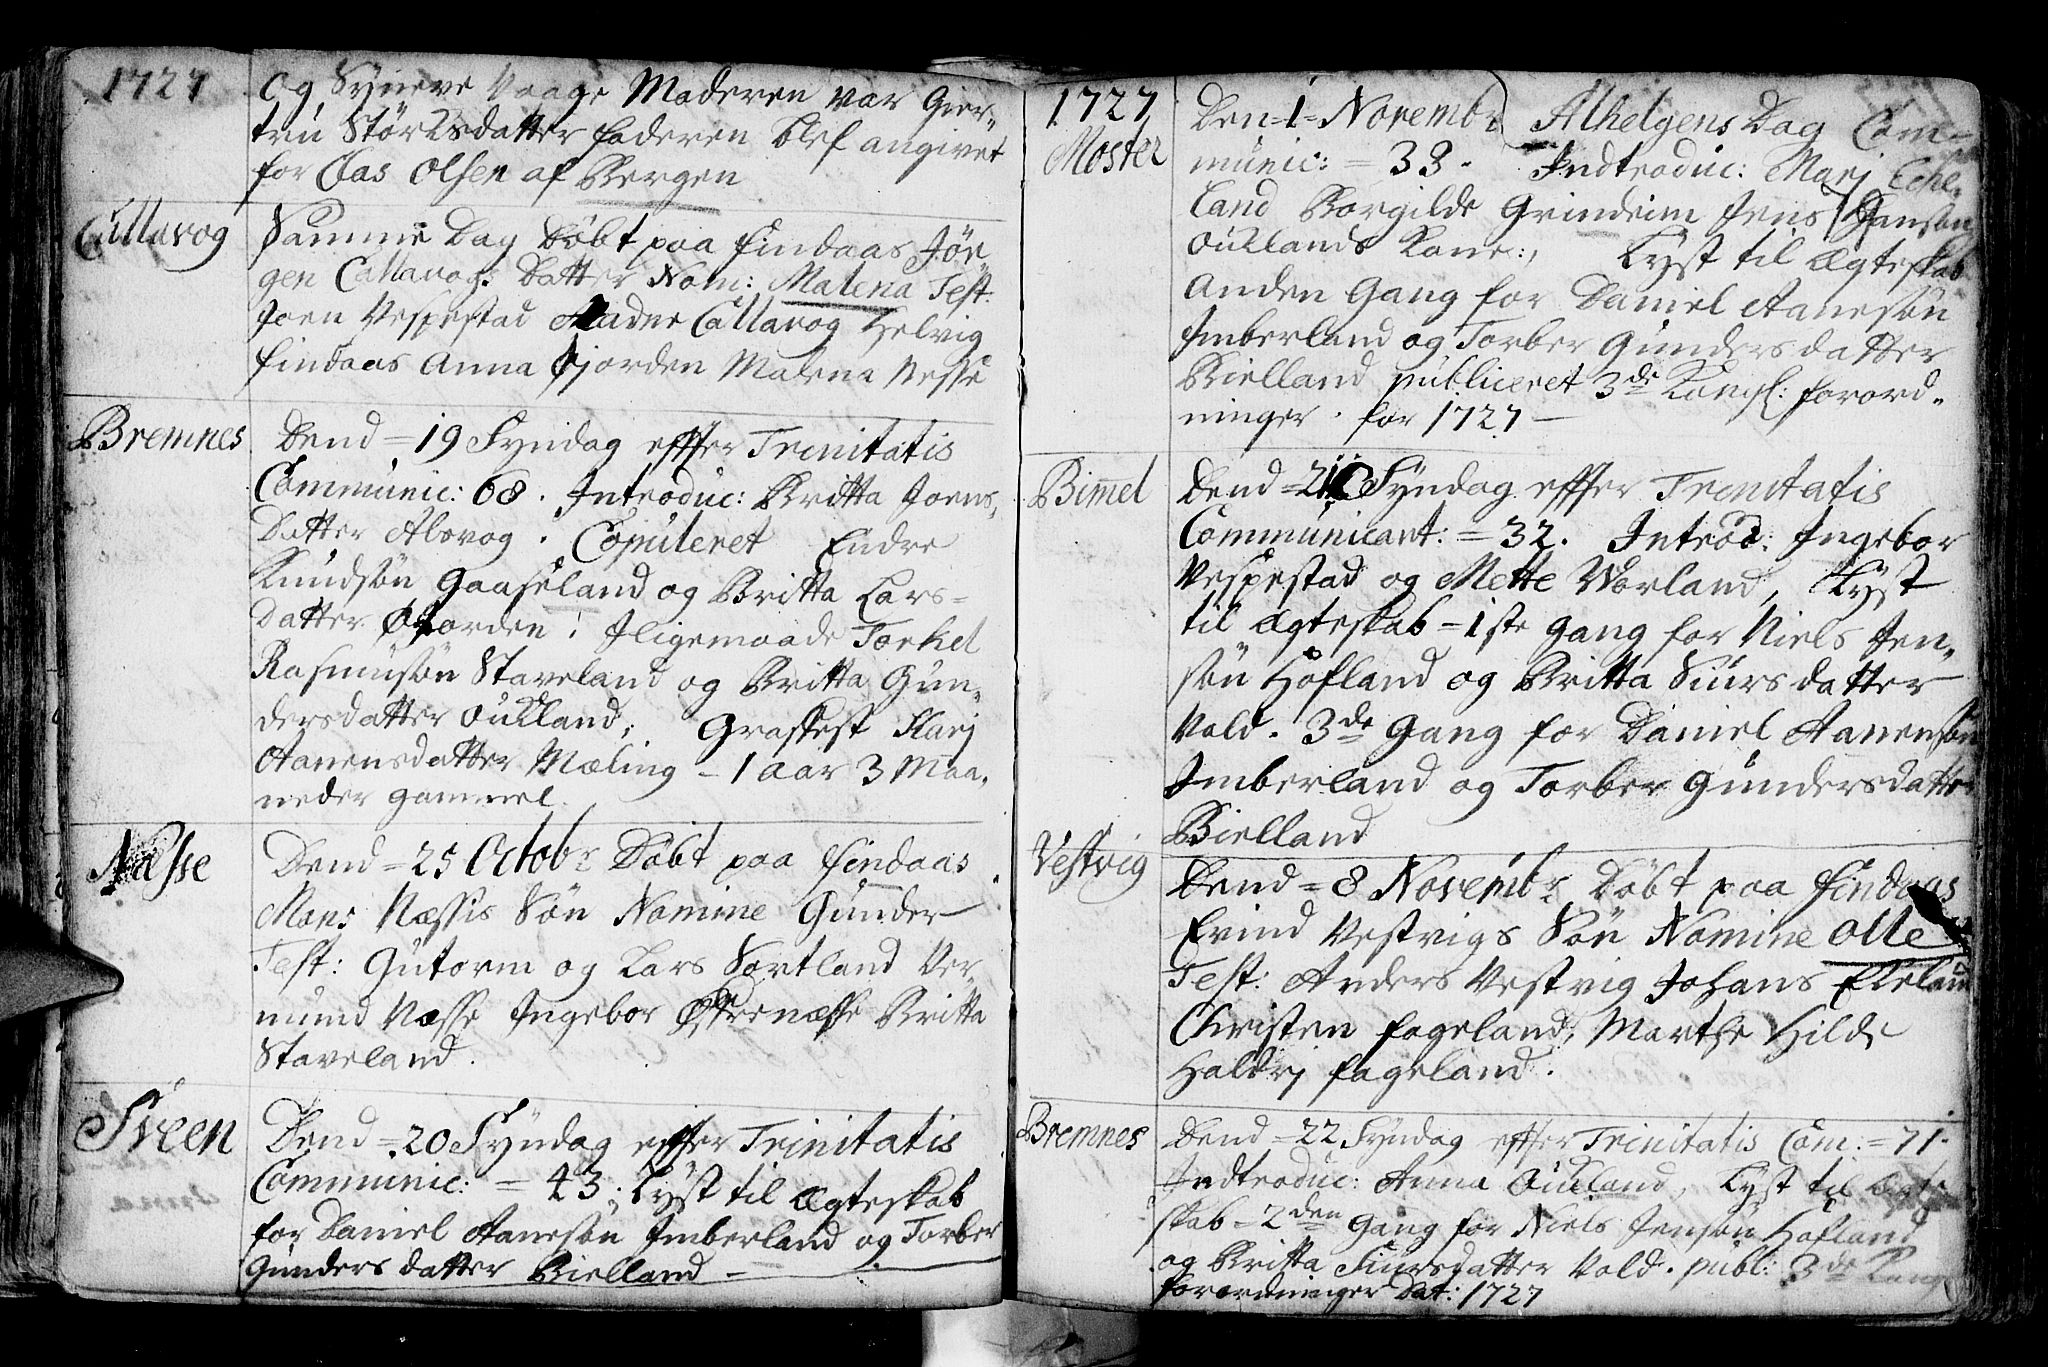 1727
og Syneve Vaage Moderen var Gier-
tru Störksdatter Faderen blef angivet
for Clas Olsen af Bergen
Callavog
Samme Dag Döbt paa Findaas Jör-
gen Callavogs Datter Nom: Malena Test:
Joen Vespestad Aadne Callavog Helvig
Findaas Anna Fjorden Malena Nesse
Bremnes
Dend = 19 Syndag effter Trinitatis
Communic: 68. Introduc: Britta Joens
Datter Alsvog. Copuleret Endre
Knudsön Gaaseland og Britta Lars-
datter Fjorden; Iligemaade Torkel
Rasmusön Staveland og Britta Gun-
dersdatter Oukland; Graffest Marj
Aanensdatter Mæling - 1 aar 3 Maa-
neder gammel.
Næsse
Dend = 25 Octobr Döbt paa Findaas
Mons Næssis Sön Nomine Gunder
Test: Gutorm og Lars Sortland Ver
mund Næsse Ingebor Østrenæsse Britta
Staveland.
Sveen
Dend = 20 Syndag effter Trinitatis
Communic: = 43; Lyst til Ægteskab
for Daniel Aanesön Imberland og Torber
Gunders datter Bielland -
1727
Moster
Den = 1 = Novembr Alhelgens Dag Com-
munic: = 33. Indtroduc: Marj Eche-
land Borgilde Grindeim Jens Hansön
Ouklands Kone; Lyst til Ægteskab
Anden Gang for Daniel Aanesön
Imberland og Torber Gunders datter
Bielland publiceret 3de Kongl: forord-
ninger. for 1727 -
Bimmel
Dend = 21 Syndag effter Trinitatis
Communicant: = 32. Introd: Ingebor
Vespestad og Mette Vorland, Lyst
til Ægteskab = 1ste Gang for Niels Jen-
sön Hofland og Britta Siursdatter
Vold. 3de Gang for Daniel Aanensön
Imberland og Torber Gundersdatter
Bielland
Vestvig
Dend = 8 Novembr Döbt paa Findaas
Evind Vestvigs Sön Nomine Olle
Test: Anders Vestvig Johans Ekeland
Christen Fageland, Marthe Hilde
Haldrj Fageland.
Bremnes
Dend = 22 Syndag effter Trinitatis Com: = 71.
Indtroduc: Anna Oukland, Lyst til Ægte
skab = 2den Gang for Niels Jensön Hofland
og Britta Siursdatter Vold. publ: 3de Kong
forordninger Dat: 1727